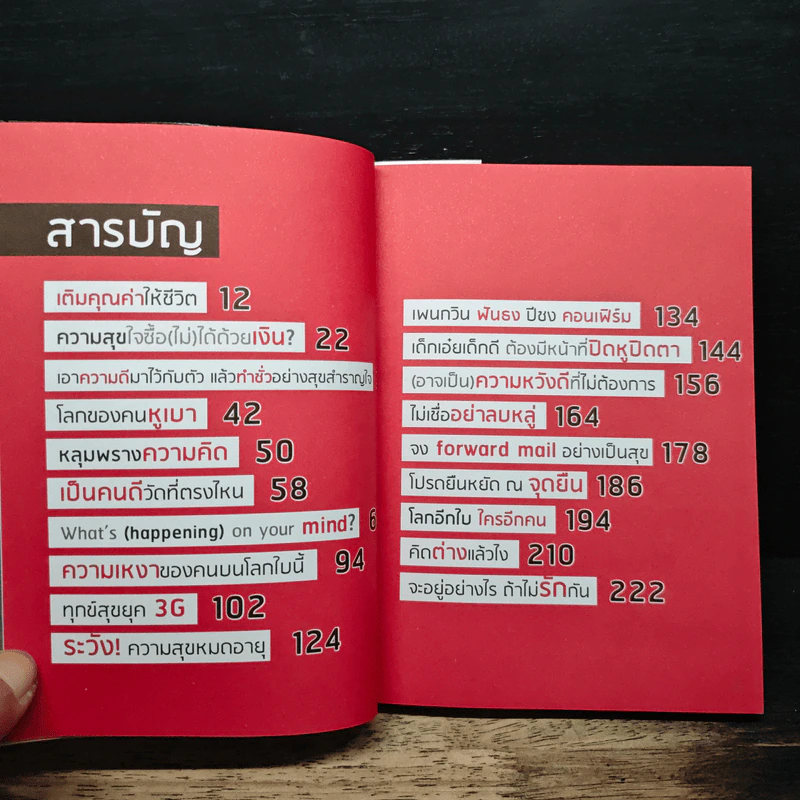 สารบัญ
เติมคุณค่าให้ชีวิต 12
ความสุขใจซื้อ(ไม่)ได้ด้วยเงิน? 22
เอาความดีมาไว้กับตัว แล้วทำชั่วอย่างสุขสำราญใจ
โลกของคนหูเบา 42
หลุมพรางความคิด 50
เป็นคนดีวัดที่ตรงไหน 58
What's (happening) on your mind?
ความเหงาของคนบนโลกใบนี้ 94
ทุกข์สุขยุค 3G 102
ระวัง! ความสุขหมดอายุ 124
เพนกวิน ฟันธง ปีชง คอนเฟิร์ม 134
เด็กเอ๋ยเด็กดี ต้องมีหน้าที่ปิดหูปิดตา 144
(อาจเป็น)ความหวังดีที่ไม่ต้องการ 156
ไม่เชื่ออย่าลบหลู่ 164
จง forward mail อย่างเป็นสุข 178
โปรดยืนหยัด ณ จุดยืน 186
โลกอีกใบ ใครอีกคน 194
คิดต่างแล้วไง 210
จะอยู่อย่างไร ถ้าไม่รักกัน 222